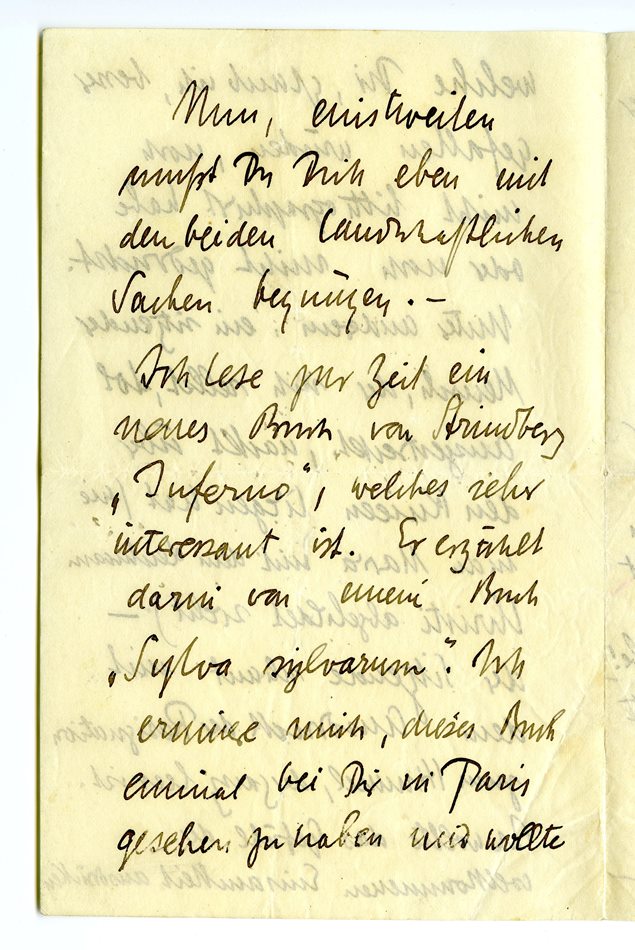 Nun, einstweilen
mußt Du Dich eben mit
den beiden landschaftlichen
Sachen begnügen. –
Ich lese zur Zeit ein
neues Buch von Strindberg
„Inferno“, welches sehr
interessant ist. Er erzählt
darin von einem Buch
„Sylva sylvarum“. Ich
erinnere mich, dieses Buch
einmal bei Dir in Paris
gesehen zu haben und wollte